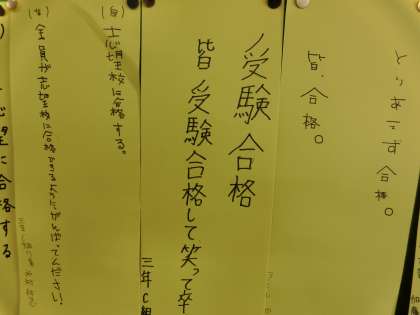 とりあえず合格。
皆、合格。
受験合格
皆受験合格して笑って卒
三年C組
(自)
志望校に合格する。
(皆)
全員が志望校に合格できるようにがんばってください!
望に合格する